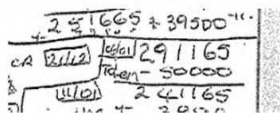 251665 + 39500
CR 21/12 01/01 291165
Token - 50000
11/01 241165